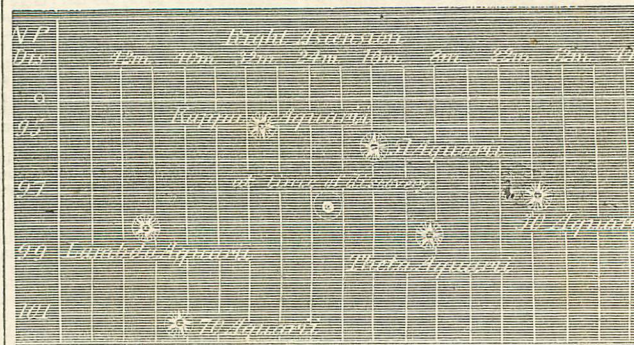 N.P. Right Ascension
Dis 42m. 40m. 32m. 24m. 16m. 8m.
95 Kappa Aquarii
Aquarii
97 at time of discovery
Aquarii
99 Lambda Aquarii Theta Aquarii
101 70 Aquarii